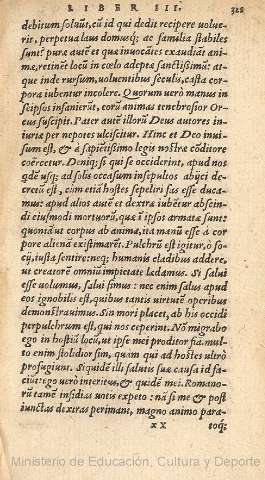 LIBER III. 328
debitum soluũt, cũ id qui dedit recipere voluerit,
perpetua laus domusq; ac familiæ stabiles
sunt: puræ autẽ et quæ inuocātes exaudiāt animæ,
retinẽt locũ in cœlo adeptæ sanctissimũ: atque
inde rursum, voluentibus seculis, casta corpora
iubentur incolere. Quorum verò manus in
seipsos insanierũt, eorũ animas tenebrosior Orcus
suscipit. Pater autẽ illorũ Deus autores iniuriæ
per nepotes vlciscitur. Hinc et Deo inuisum
est, & à sapiẽtissimo legis nostræ cõditore
coërcetur. Deniq; si qui se occiderint, apud nos
quidẽ vsq; ad solis occasum insepultos abijci decretũ
est, cùm etiã hostes sepeliri fas esse ducamus:
apud alios autẽ et dextræ iubẽtur abscindi
eiusmodi mortuorũ, quæ ĩ ipsos armatæ sunt:
quoniã vt corpus ab anima, ita manũ esse à corpore
aliena existimarẽt. Pulchrũ est igitur, ô socij,
iusta sentire: neq; humanis cladibus addere,
vt creatorẽ omniũ impietate lædamus. Si salui
esse volumus, salui simus: nec enim salus apud
eos ignobilis est, quibus tantis virtutẽ operibus
demonstrauimus. Sin mori placet, ab his occidi
perpulchrum est, qui nos ceperint. Nõ migrabo
ego in hostiũ locũ, vt ipse mei proditor fiã. multo
enim stolidior sim, quam qui ad hostes vltrò
profugiunt. Siquidẽ illi salutis suæ causa id faciũt:
ego verò interitus, & quidẽ mei. Romanorũ
tamẽ insidias votis expeto: nã si me & post
iunctas dextras perimant, magno animo para-
XX toq;
Ministerio de Educación, Cultura y Deporte